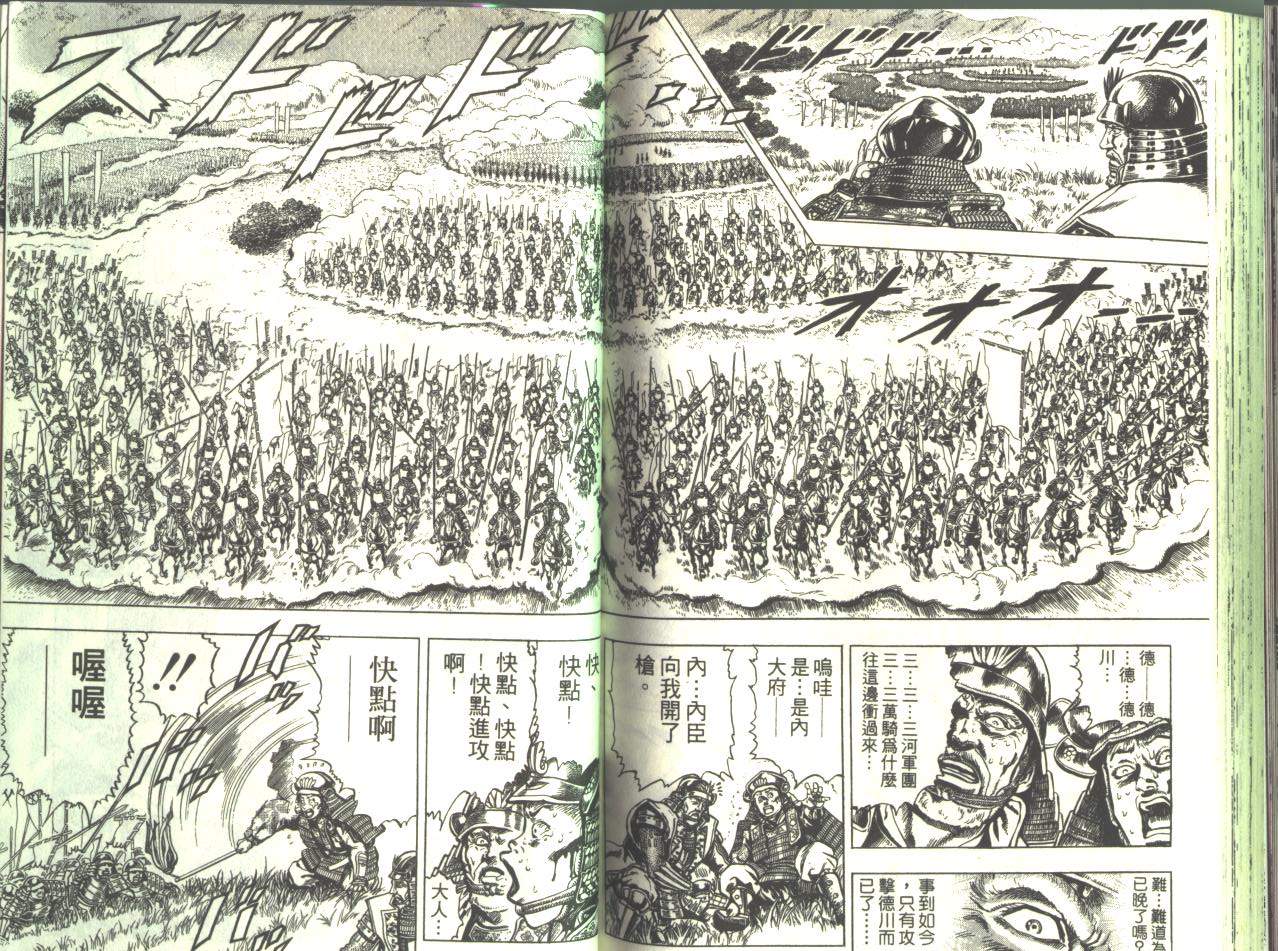 ドドド
ドドドド…
ズドドドド
ロロ…
オオオ…
德——德
…德…德
川…
三…三…三河軍團
三…三萬騎爲什麼
往這邊衝過來…
難…難道
已晚了嗎?
事到如今
,只有攻
擊德川而
已了……
嗚哇——
是…是內
大府——
內…內臣
向我開了
槍。
快、
快點!
快點、快點
!快點進攻
啊!
大人…
快點啊——
バババ
!!
喔喔——